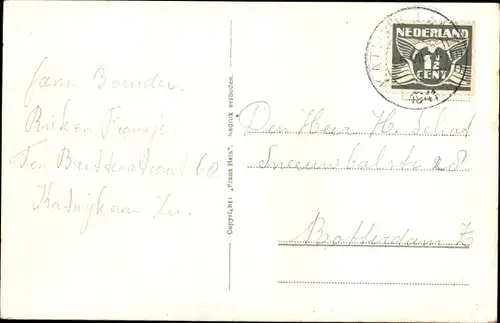 Fam. Boender.
Rie en Fransje.
Ten Brittenstraat 60.
Katwijk aan Zee.
Copyright: „Frans Hals". Nadruk verboden.
NEDERLAND
1½
CENT
1941
Den Heer H. Schot
Sneeuwbalstr 28
Rotterdam Z